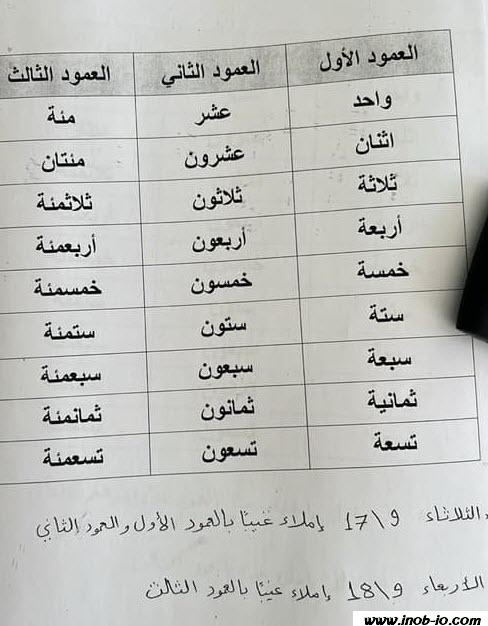 العمود الأول العمود الثاني العمود الثالث
واحد عشر مئة
اثنان عشرون مئتان
ثلاثة ثلاثون ثلاثمئة
أربعة أربعون أربعمئة
خمسة خمسون خمسمئة
ستة ستون ستمئة
سبعة سبعون سبعمئة
ثمانية ثمانون ثمانمئة
تسعة تسعون تسعمئة
الثلاثاء 9\17 إملاء غيبًا بالعمود الأول والعمود الثاني
الأربعاء 9\18 إملاء غيبًا بالعمود الثالث
www.inob-io.com